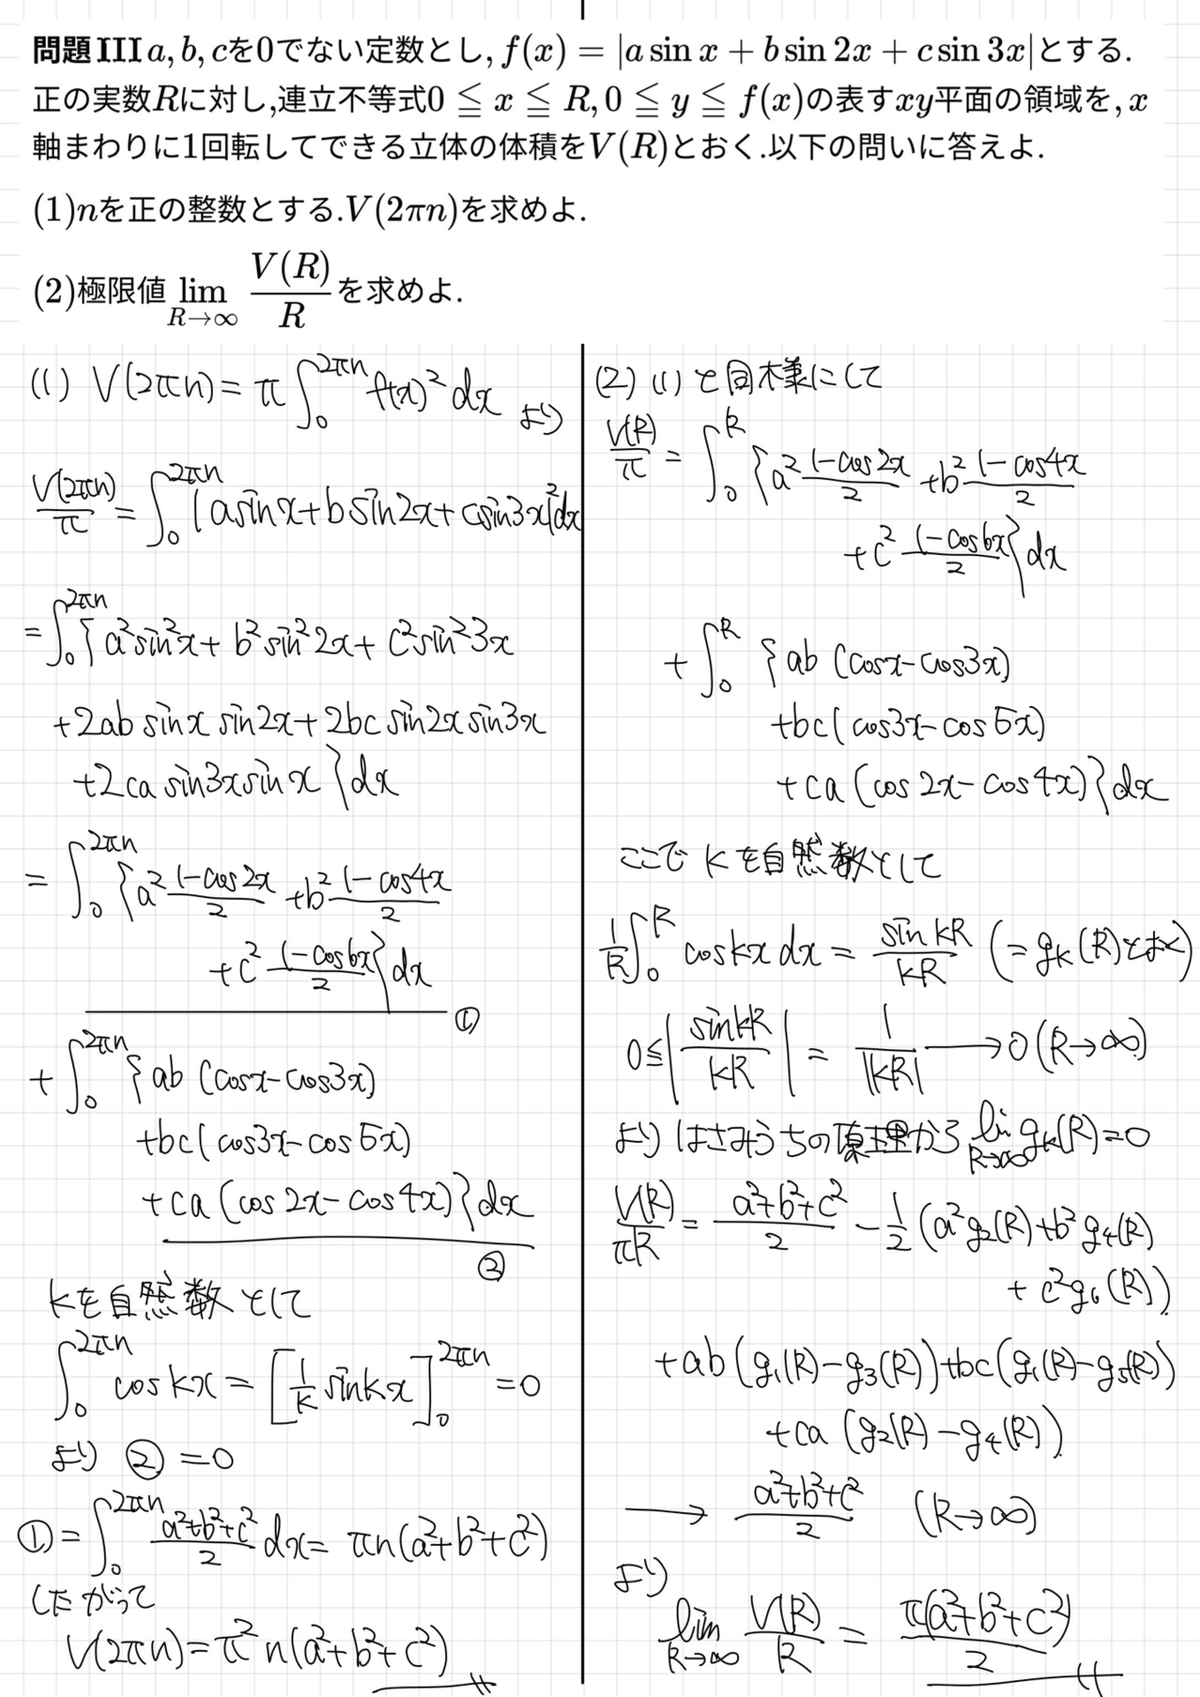 問題III a, b, cを0でない定数とし, f(x) = |a sin x + b sin 2x + c sin 3x|とする.
正の実数Rに対し,連立不等式0 ≦ x ≦ R, 0 ≦ y ≦ f(x)の表すxy平面の領域を, x
軸まわりに1回転してできる立体の体積をV(R)とおく.以下の問いに答えよ.
(1)nを正の整数とする.V(2πn)を求めよ.
(2)極限値 lim_{R→∞} V(R)/R を求めよ.
(1) V(2πn) = π∫_0^{2πn} f(x)² dx より
V(2πn)/π = ∫_0^{2πn} |a sin x + b sin 2x + c sin 3x|² dx
= ∫_0^{2πn} { a² sin² x + b² sin² 2x + c² sin² 3x
+ 2ab sin x sin 2x + 2bc sin 2x sin 3x
+ 2ca sin 3x sin x } dx
= ∫_0^{2πn} { a² (1-cos 2x)/2 + b² (1-cos 4x)/2
+ c² (1-cos 6x)/2 } dx ①
+ ∫_0^{2πn} { ab (cos x - cos 3x)
+ bc ( cos 3x - cos 5x)
+ ca (cos 2x - cos 4x) } dx ②
kを自然数として
∫_0^{2πn} cos kx = [ 1/k sin kx ]_0^{2πn} = 0
より ② = 0
① = ∫_0^{2πn} (a²+b²+c²)/2 dx = πn(a²+b²+c²)
したがって
V(2πn) = π² n(a²+b²+c²)
(2) (1) と同様にして
V(R)/π = ∫_0^R { a² (1-cos 2x)/2 + b² (1-cos 4x)/2
+ c² (1-cos 6x)/2 } dx
+ ∫_0^R { ab (cos x - cos 3x)
+ bc ( cos 3x - cos 5x)
+ ca (cos 2x - cos 4x) } dx
ここで kを自然数として
1/R ∫_0^R cos kx dx = sin kR/kR (= g_k(R)とおく)
0 ≤ | sin kR/kR | = 1/|kR| → 0 (R→∞)
より はさみうちの原理から lim_{R→∞} g_k(R) = 0
V(R)/πR = (a²+b²+c²)/2 - 1/2 (a² g₂(R) + b² g₄(R)
+ c² g₆(R))
+ ab (g₁(R) - g₃(R)) + bc (g₁(R) - g₅(R))
+ ca (g₂(R) - g₄(R))
→ (a²+b²+c²)/2 (R→∞)
より
lim_{R→∞} V(R)/R = π(a²+b²+c²)/2